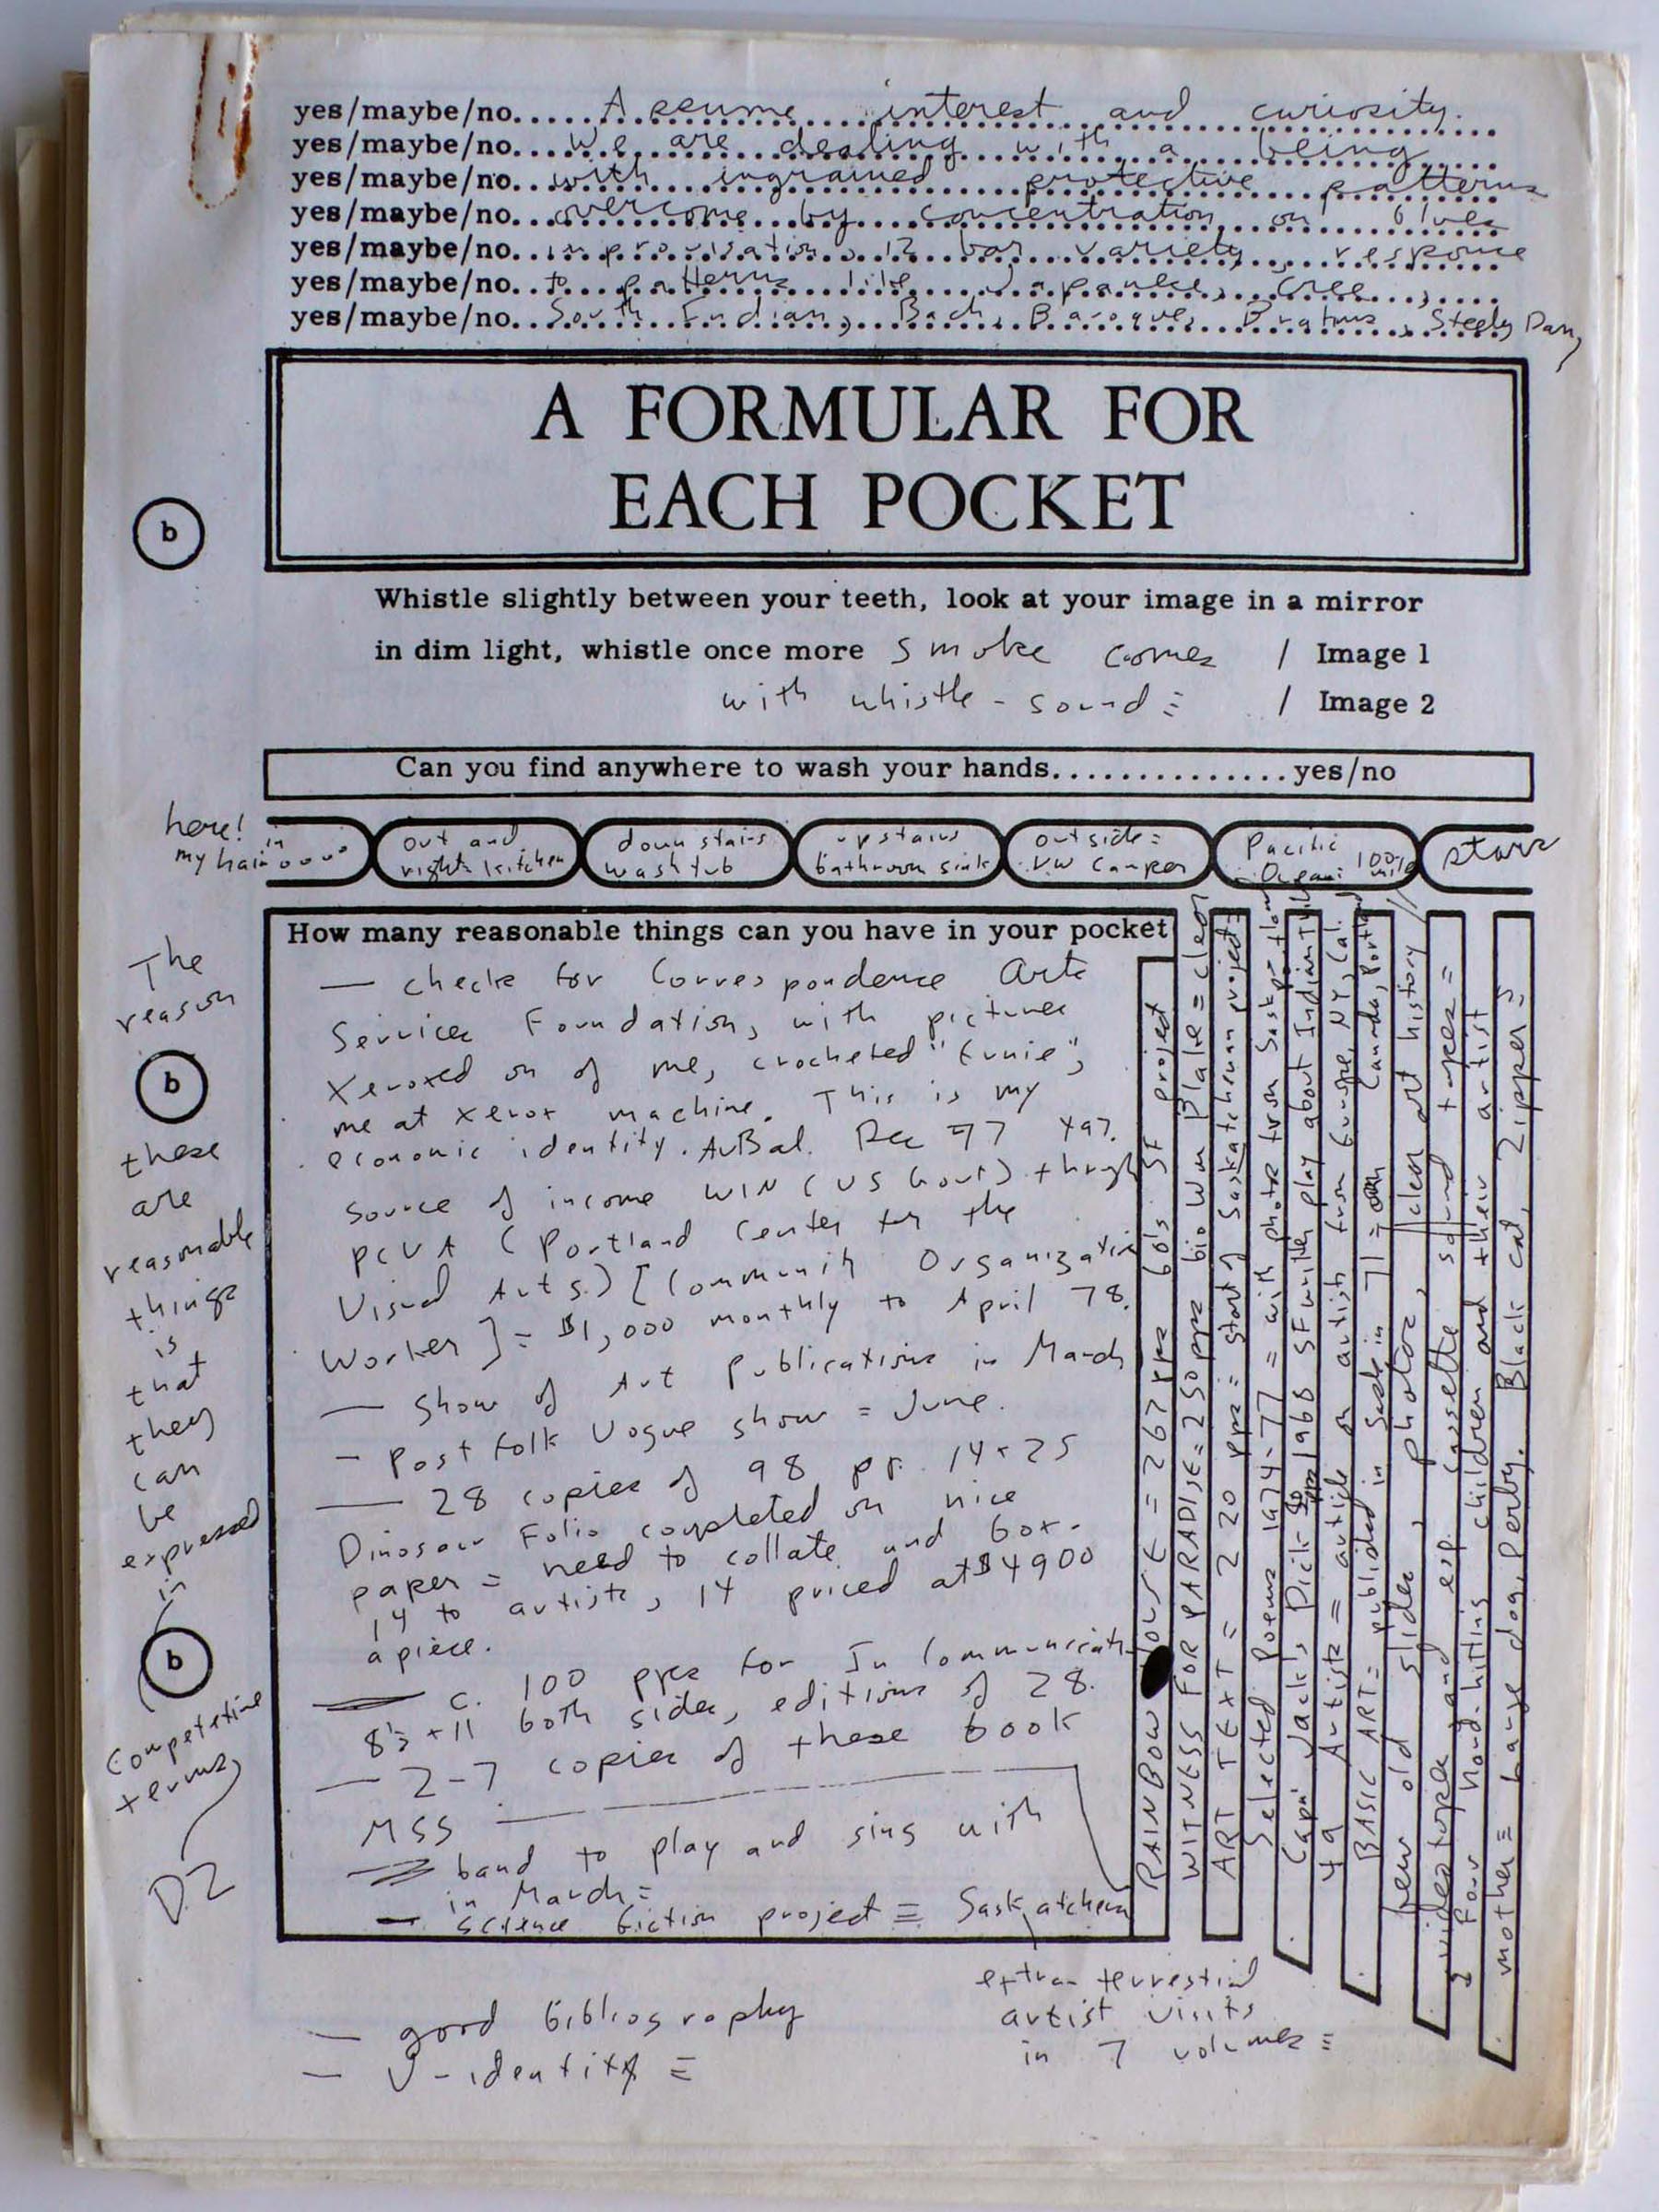 yes/maybe/no.... Assume interest and curiosity.
yes/maybe/no.... We are dealing with a being
yes/maybe/no.... with ingrained protective patterns
yes/maybe/no.... overcome by concentration on blues
yes/maybe/no.... improvisation, 12 bar variety, response
yes/maybe/no.... to patterns like Japanese, Cree,
yes/maybe/no.... South Indian, Bach, Baroque, Brahms, Steely Dan,
A FORMULAR FOR
EACH POCKET
b
Whistle slightly between your teeth, look at your image in a mirror
in dim light, whistle once more smoke comes / Image 1
with whistle-sound = / Image 2
Can you find anywhere to wash your hands...............yes/no
here! in
my hair
out and
right: kitchen
down stairs
wash tub
upstairs
bathroom sink
outside =
VW Camper
Pacific
Ocean: 100 mile
stars
How many reasonable things can you have in your pocket
— checks for Correspondence Arts
Services Foundation, with pictures
Xeroxed on of me, crocheted "Ernie",
me at xerox machine. This is my
economic identity. AvBal. Dec 77 $97.
Source of income WIN (US Govt) through
PCVA (Portland Center for the
Visual Arts.) [Community Organization
Worker] = $1,000 monthly to April 78.
— Show of Art Publications in March
— Post Folk Vogue show = June.
— 28 copies of 98 pp. 14×25
Dinosaur Folio completed on nice
paper = need to collate and box.
14 to artists, 14 priced at $4900
apiece.
— c. 100 pges for In Communicati
8½ × 11 both sides, editions of 28.
— 2-7 copies of these book
MSS
— band to play and sing with
in March =
— science fiction project = Saskatchewan
— good bibliography
— V-identity =
extra-terrestrial
artist visits
in 7 volumes =
RAINBOW HOUSE = 267 pgs 60's SF project
WITNESS FOR PARADISE = 250 pges bio Wm Blake = clean
ART TEXT = 220 pgs = start of Saskatchewan project =
Selected Poems 1974-77 = with photos from Sask
Capn' Jack's Pick 1968 SF writer play about Indian
49 Artists = article on artists from Europe, NY, Cal.
BASIC ART = published in Sask in 71 = Canada, Portland
new old slides, photos, clean art history //
videotapes and esp. cassette sound tapes =
Four hard-hitting children and their artist
mother = Large dog, Perby. Black cat, Zipper =
The
reason
b
these
are
reasonable
things
is
that
they
can
be
expressed
in
b
competetive
terms,
DZ